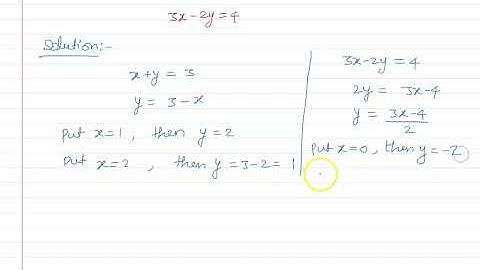 3x-2y=4
Solution:-
x+y = 3
y = 3-x
Put x=1, then y=2
Put x=2, then y=3-2=1
3x-2y=4
2y = 3x-4
y = 3x-4/2
Put x=0, then y=-2